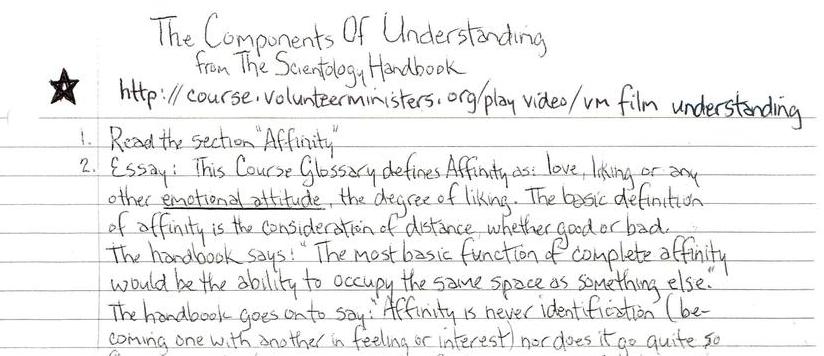 The Components Of Understanding
from The Scientology Handbook
http://course.volunteerministers.org/play video/vm film understanding
1. Read the section "Affinity"
2. Essay: This Course Glossary defines Affinity as: love, liking or any
other emotional attitude, the degree of liking. The basic definition
of affinity is the consideration of distance, whether good or bad.
The handbook says: "The most basic function of complete affinity
would be the ability to occupy the same space as something else."
The handbook goes on to say: "Affinity is never identification (be-
coming one with another in feeling or interest) nor does it go quite so